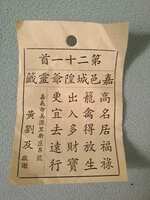 第二十一首
嘉邑城隍爺靈籤
高名居福祿
籠禽得放生
出入多財寶
更宜去遠行
嘉義市
黃劉及 敬謝